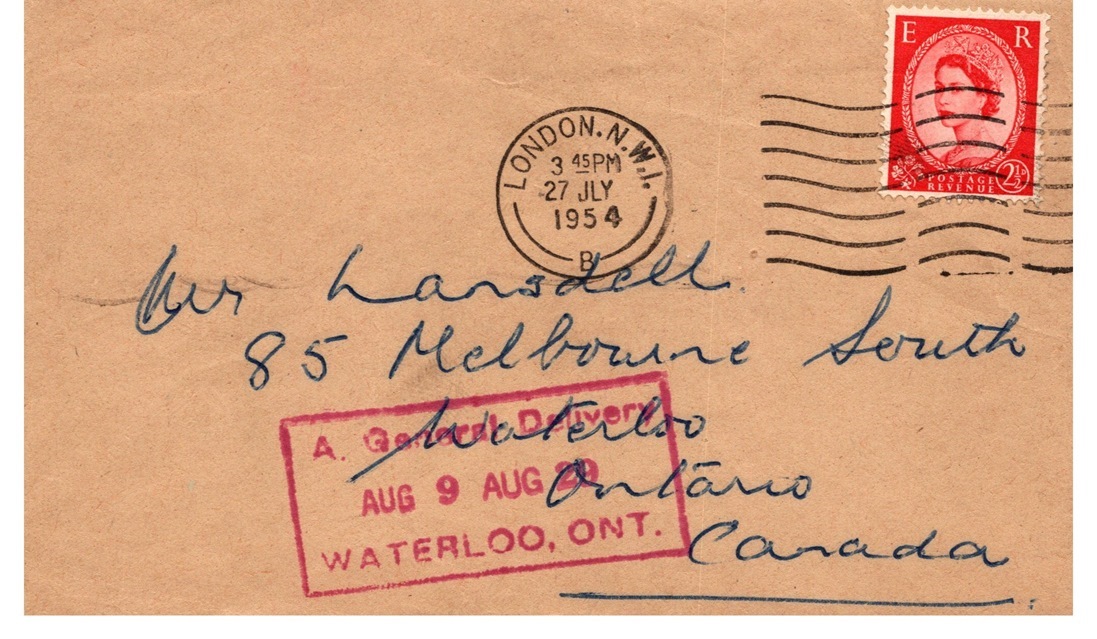 E R
POSTAGE
REVENUE
2½D
LONDON. N.W.1.
3 45 PM
27 JLY
1954
B
Mr Lansdell.
85 Melbourne South
Waterloo
Ontario
Canada
A. General Delivery
AUG 9 AUG 29
WATERLOO, ONT.